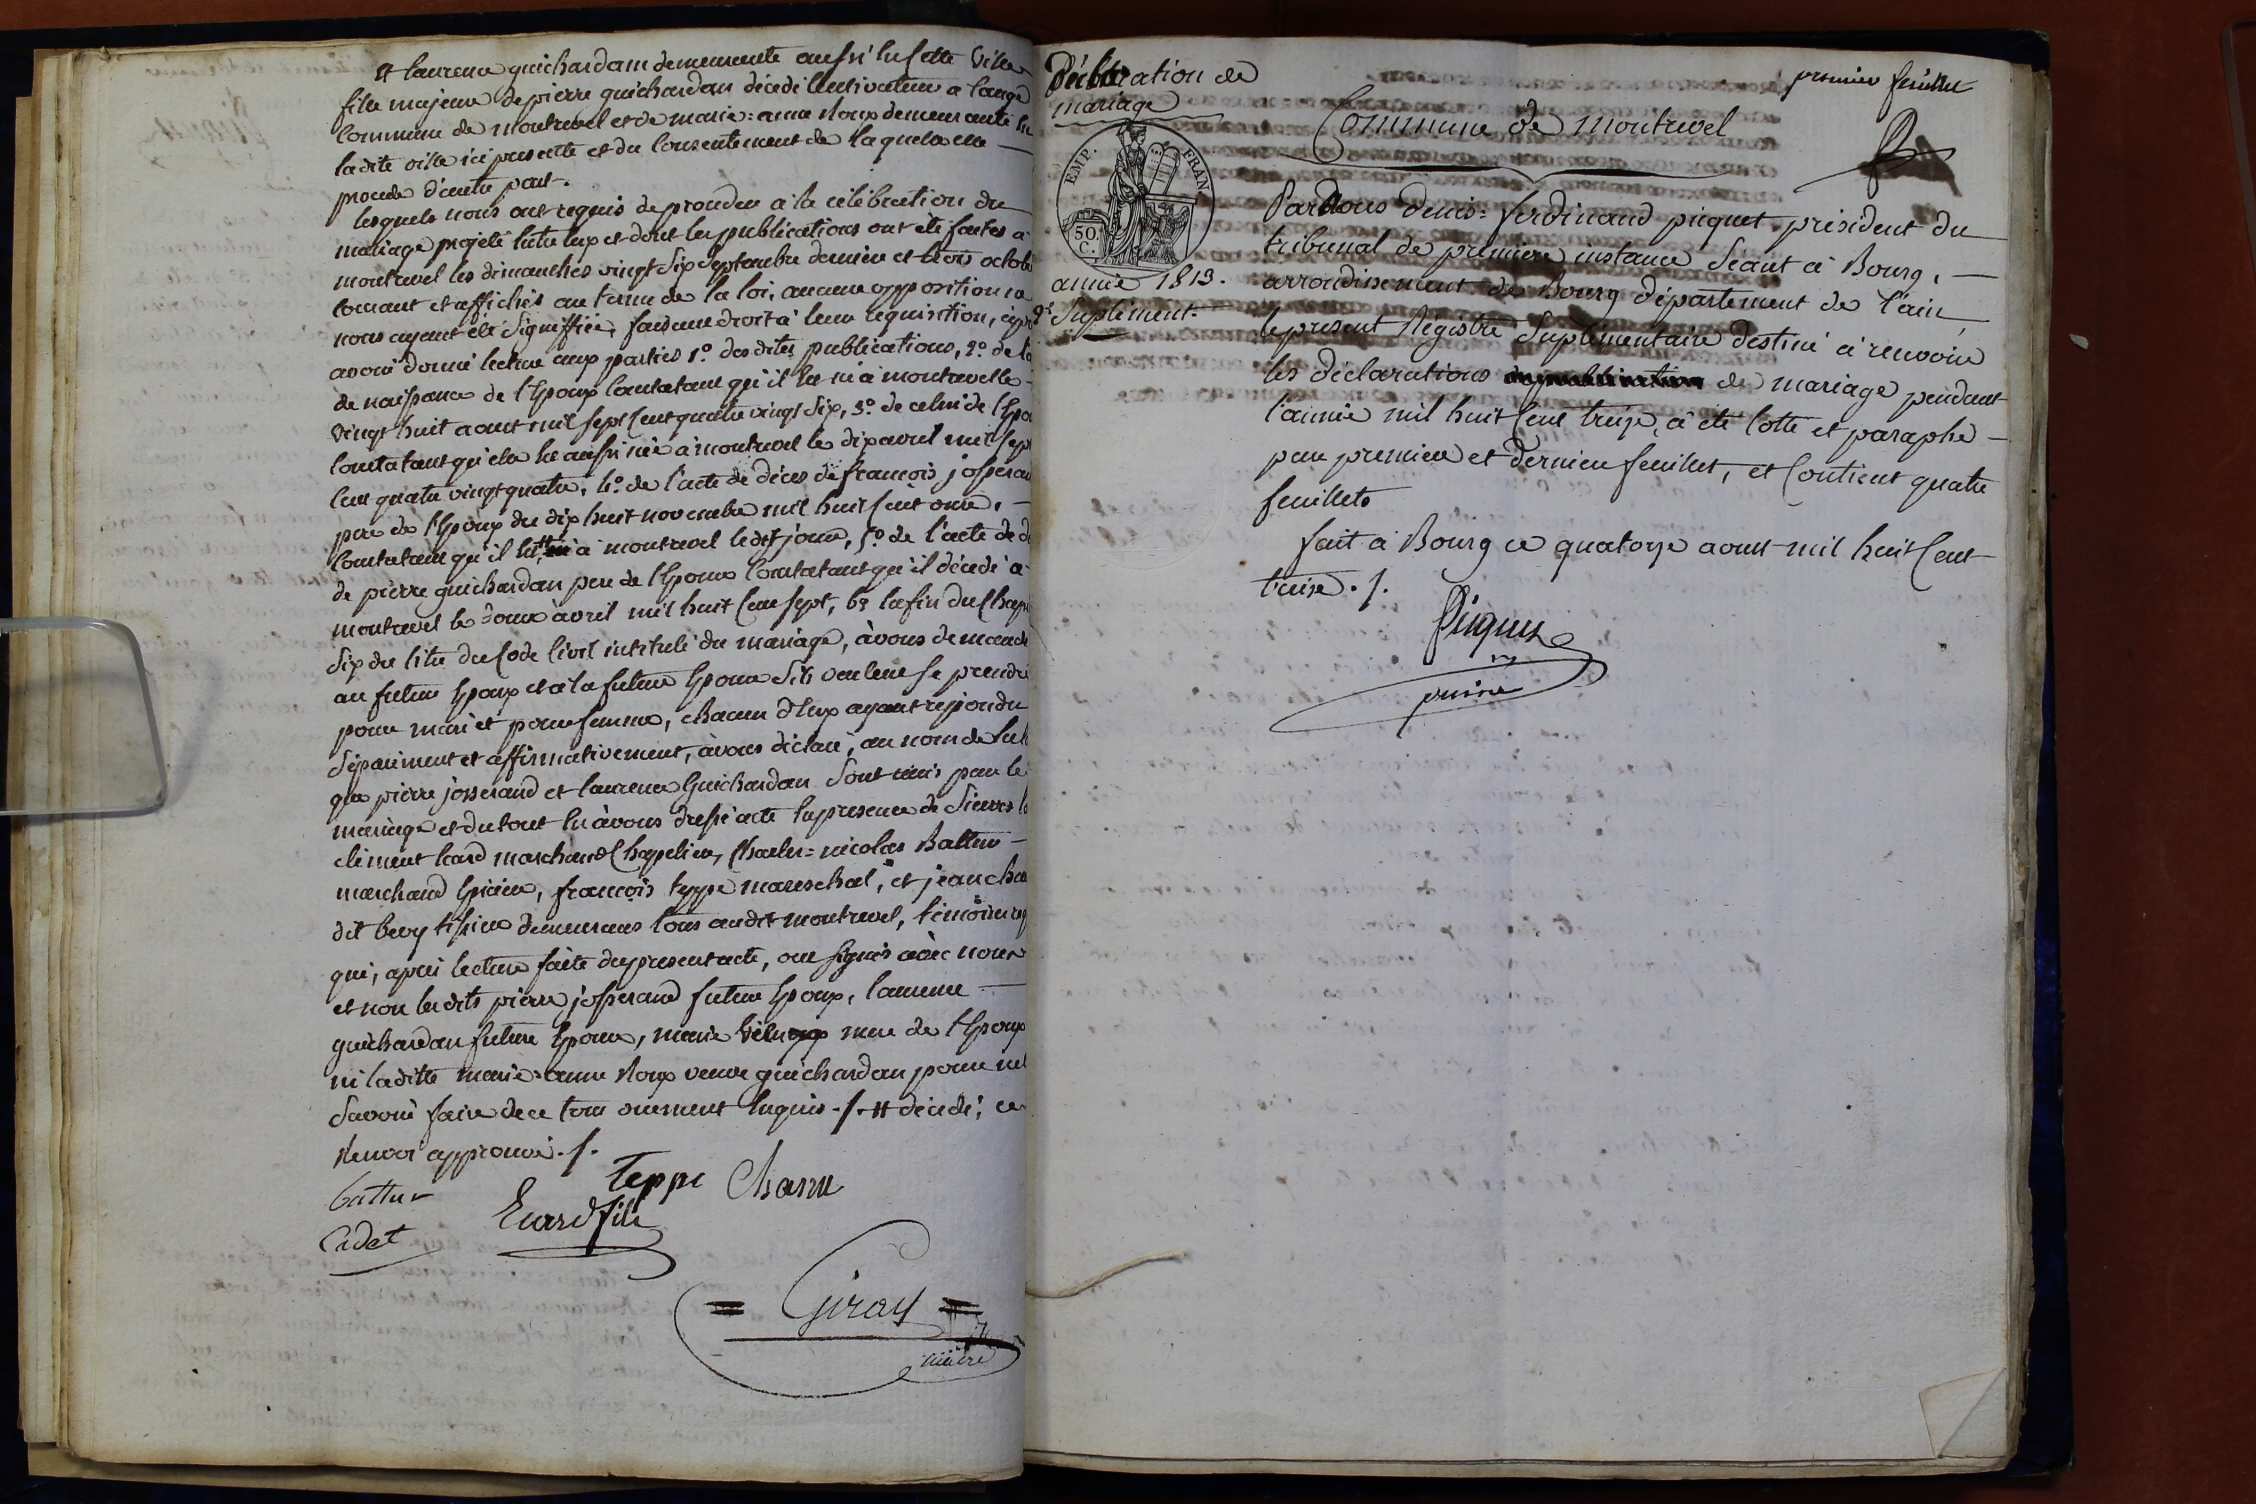 et laurence guichardan demeurante aussi en cette ville
fille majeure de pierre guichardan décédé cultivateur a
commune de montrevel et de marie=anne Roux demeurante en
ladite ville ici presente et du consentement de laquelle elle
procede d'autre part.
lesquels nous ont requis de proceder à la célébration du
mariage projeté entre eux et dont les publications ont été faites à
montrevel les dimanches vingt six septembre dernier et trois octobre
courant et affichés au terme de la loi, aucune opposition ne
nous ayant été signiffiée, faisant droit à leur requisition, après
avoir donné lecture aux parties 1.º desdites publications, 2.º de l'a
de naissance de l'Epoux constatant qu'il est né à montrevel le
vingt huit aoust mil sept cent quatre vingt dix, 3.º de celui de l'Epou
constatant qu'elle est aussi née à montrevel le dix avril mil sept
cent quatre vingt quatre, 4.º de l'acte de décès de françois josserand
pere de l'Epoux du dix huit novembre mil huit cent onze,
constatant qu'il est # à montrevel ledit jour, 5.º de l'acte de d
de pierre guichardan pere de l'Epouse constatant qu'il décédé à
montrevel le douze avril mil huit cent sept, 6.º enfin du Chapi
six du titre du Code Civil intitulé du mariage, àvons demandé
au futur Epoux et à la future Epouse s'ils veulent se prendre
pour mari et pour femme, chacun d'eux ayant répondu
séparément et affirmativement, àvons déclaré, au nom de la l
que pierre josserand et laurence Guichardan sont unis par le
mariage et du tout en àvons dressé acte en presence de sieurs
clément Euard marchand Chapelier, Charles=nicolas Battur
marchand Epicier, françois teppe mareschal, et jean cha
dit bevy tissier demeurans tous audit montrevel, témoins req
qui, après lecture faite du present acte, ont signés avec nous
et non lesdits pierre josserand futur Epoux, laurence
guichardan future Epouse, marie mere de l'Epoux
ni ladite marie=anne Roux veuve guichardan pour ne
savoir faire de ce tous duement enquis ./. # décédé, ce
Renvoi approuvé ./.
teppe Charm
battur
Euard fils
Cadet
= Giraud =
maire
Déclaration de
mariage
premier feuillet
Commune de montrevel
EMP. FRAN
50.
C.
année 1813.
2.e Suplément.
Par Nous denis=ferdinand picquet président du
tribunal de premiere instance séant à Bourg,
arrondissement de Bourg département de l'ain,
le present Régistre Suplémentaire destiné à recevoir
les déclarations de mariage pendant
l'année mil huit Cent treize, à été Cotté et paraphé
par premier et dernier feuillet, et Contient quatre
feuillets
fait à Bourg ce quatorze aoust mil huit Cent
treize ./.
Picquet